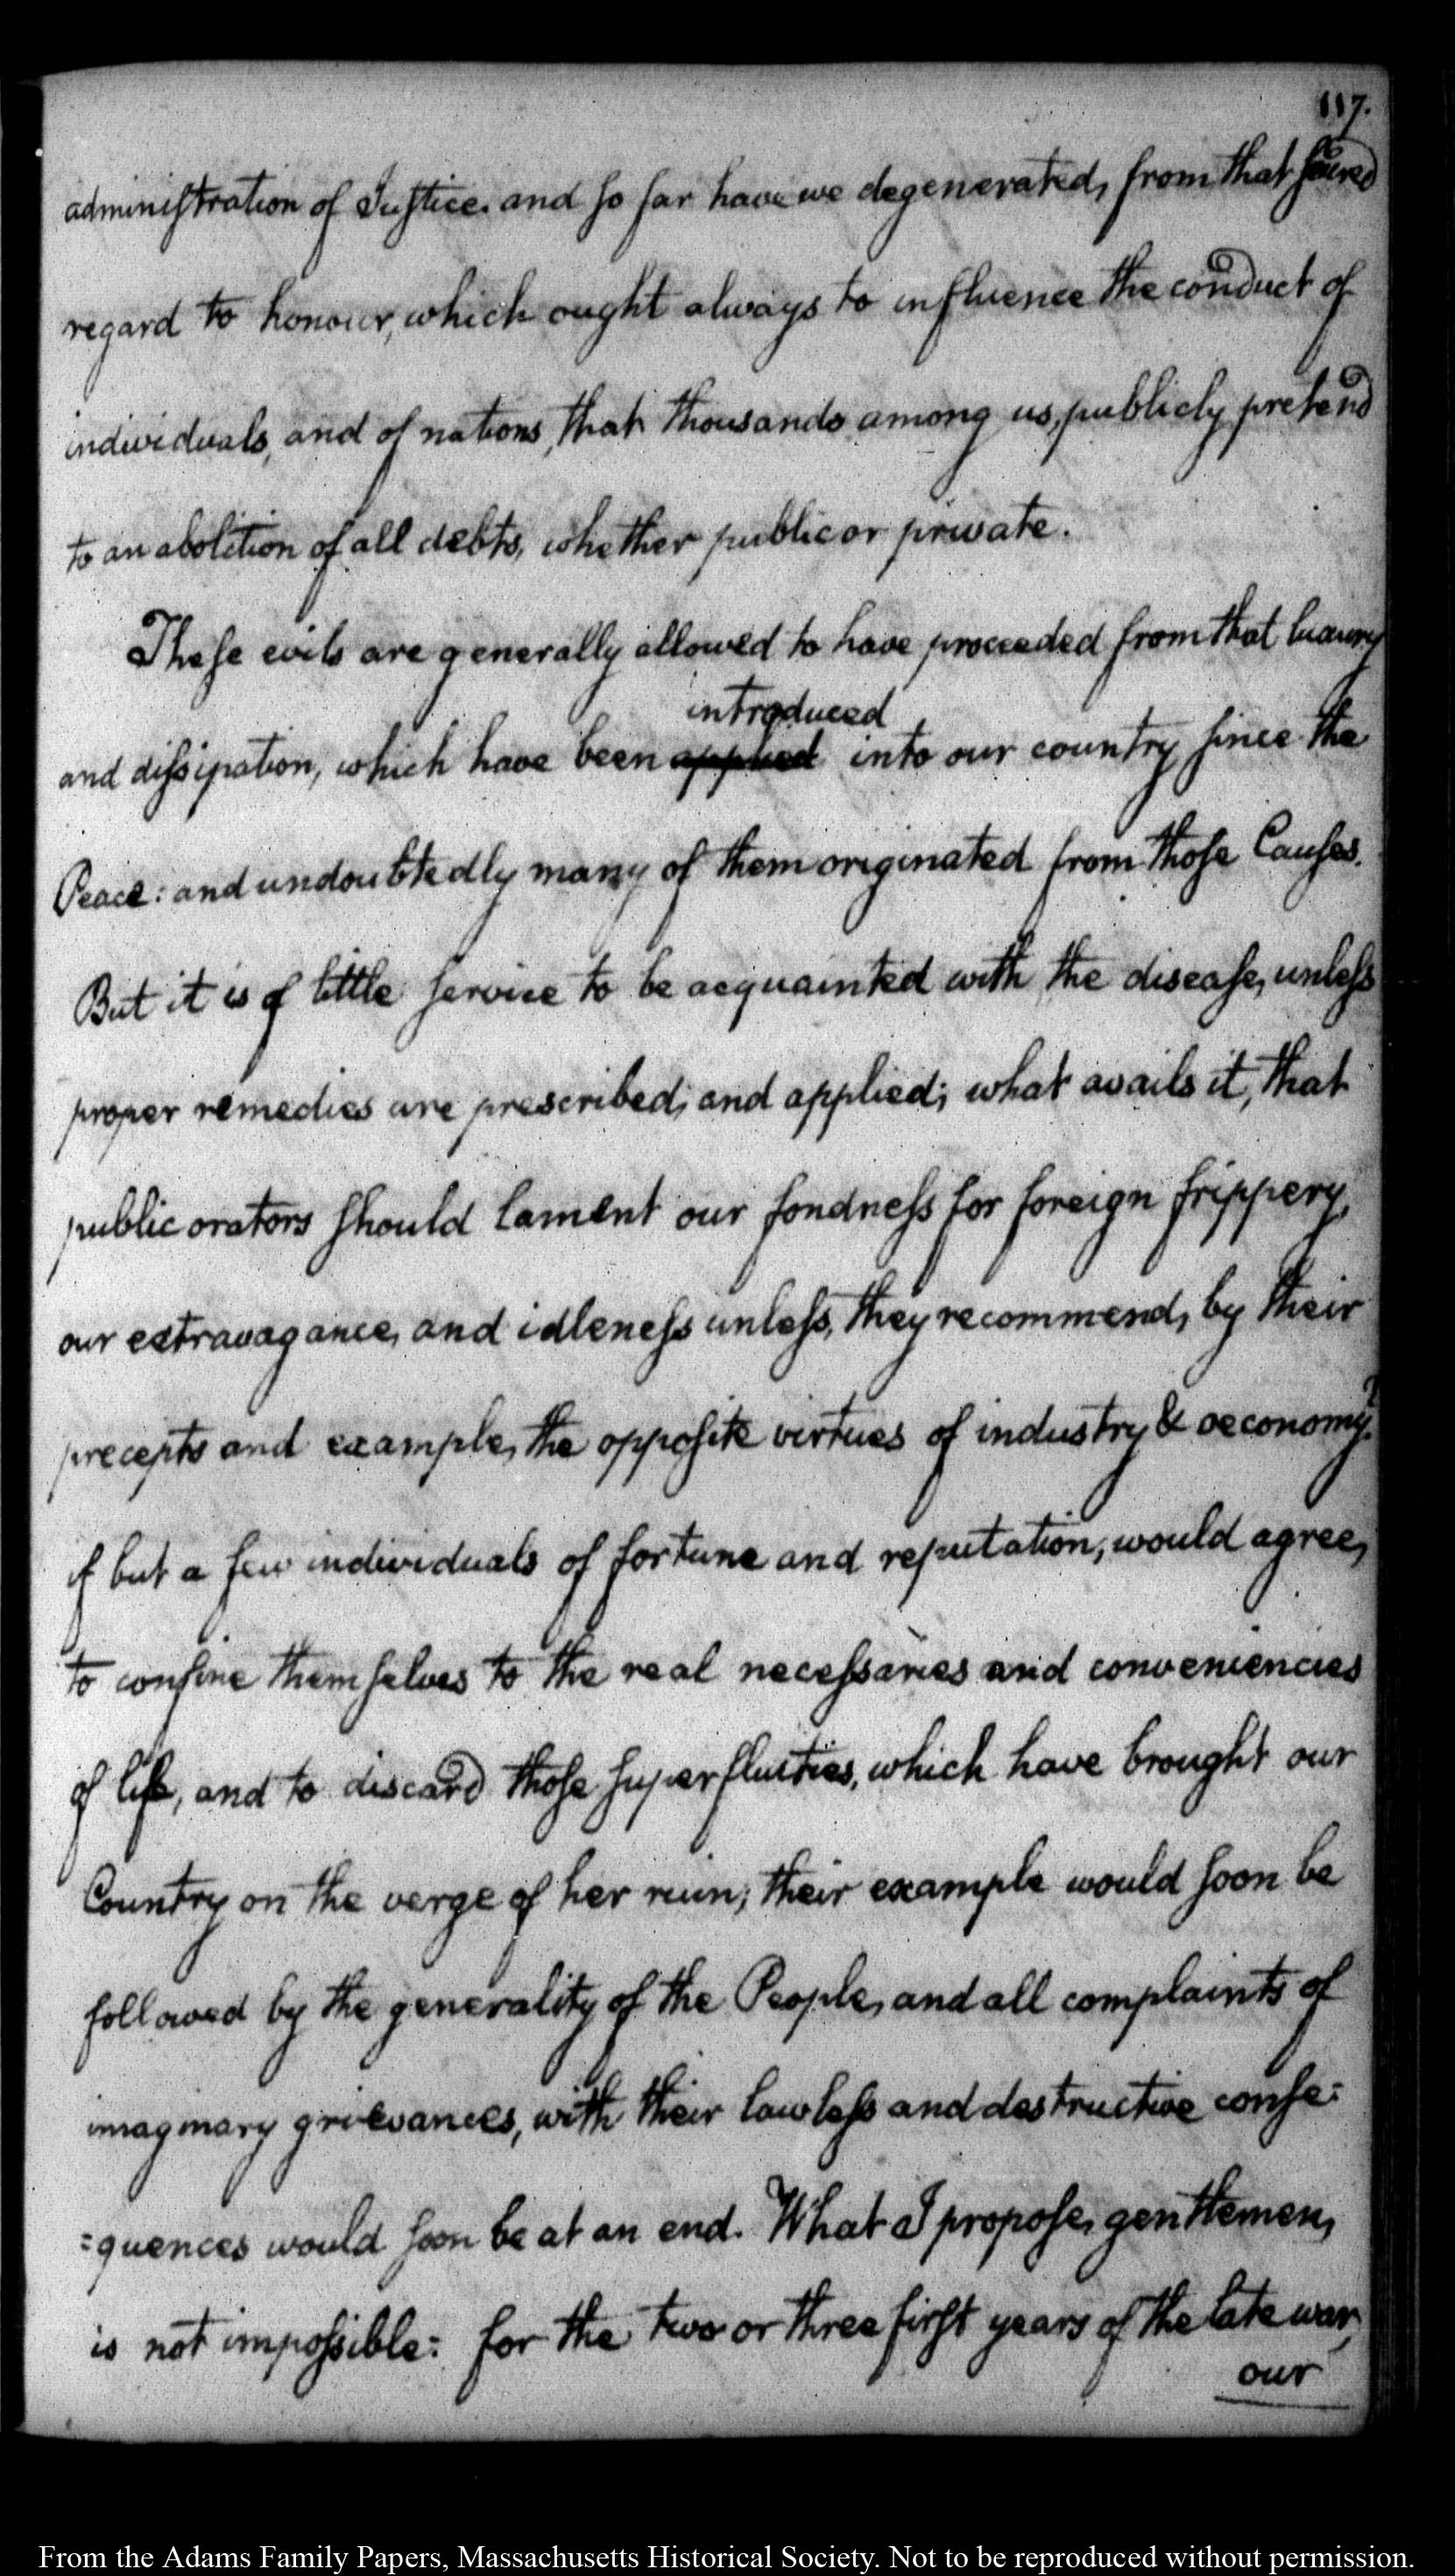 117.
administration of Justice. and so far have we degenerated, from that sacred
regard to honour, which ought always to influence the conduct of
individuals, and of nations, that thousands among us, publicly pretend
to an abolition of all debts, whether public or private.
These evils are generally allowed to have proceeded from that luxury
introduced
and dissipation, which have been applied into our country since the
Peace: and undoubtedly many of them originated from those Causes.
But it is of little service to be acquainted with the disease, unless
proper remedies are prescribed, and applied; what avails it, that
public orators should lament our fondness for foreign frippery,
our extravagance, and idleness unless, they recommend, by their
precepts and example, the opposite virtues of industry & oeconomy?
if but a few individuals of fortune and reputation, would agree,
to confine themselves to the real necessaries and conveniencies
of life, and to discard those superfluities, which have brought our
Country on the verge of her ruin; their example would soon be
followed by the generality of the People, and all complaints of
imaginary grievances, with their lawless and destructive conse=
=quences would soon be at an end. What I propose, gentlemen,
is not impossible: for the two or three first years of the late war,
our
From the Adams Family Papers, Massachusetts Historical Society. Not to be reproduced without permission.